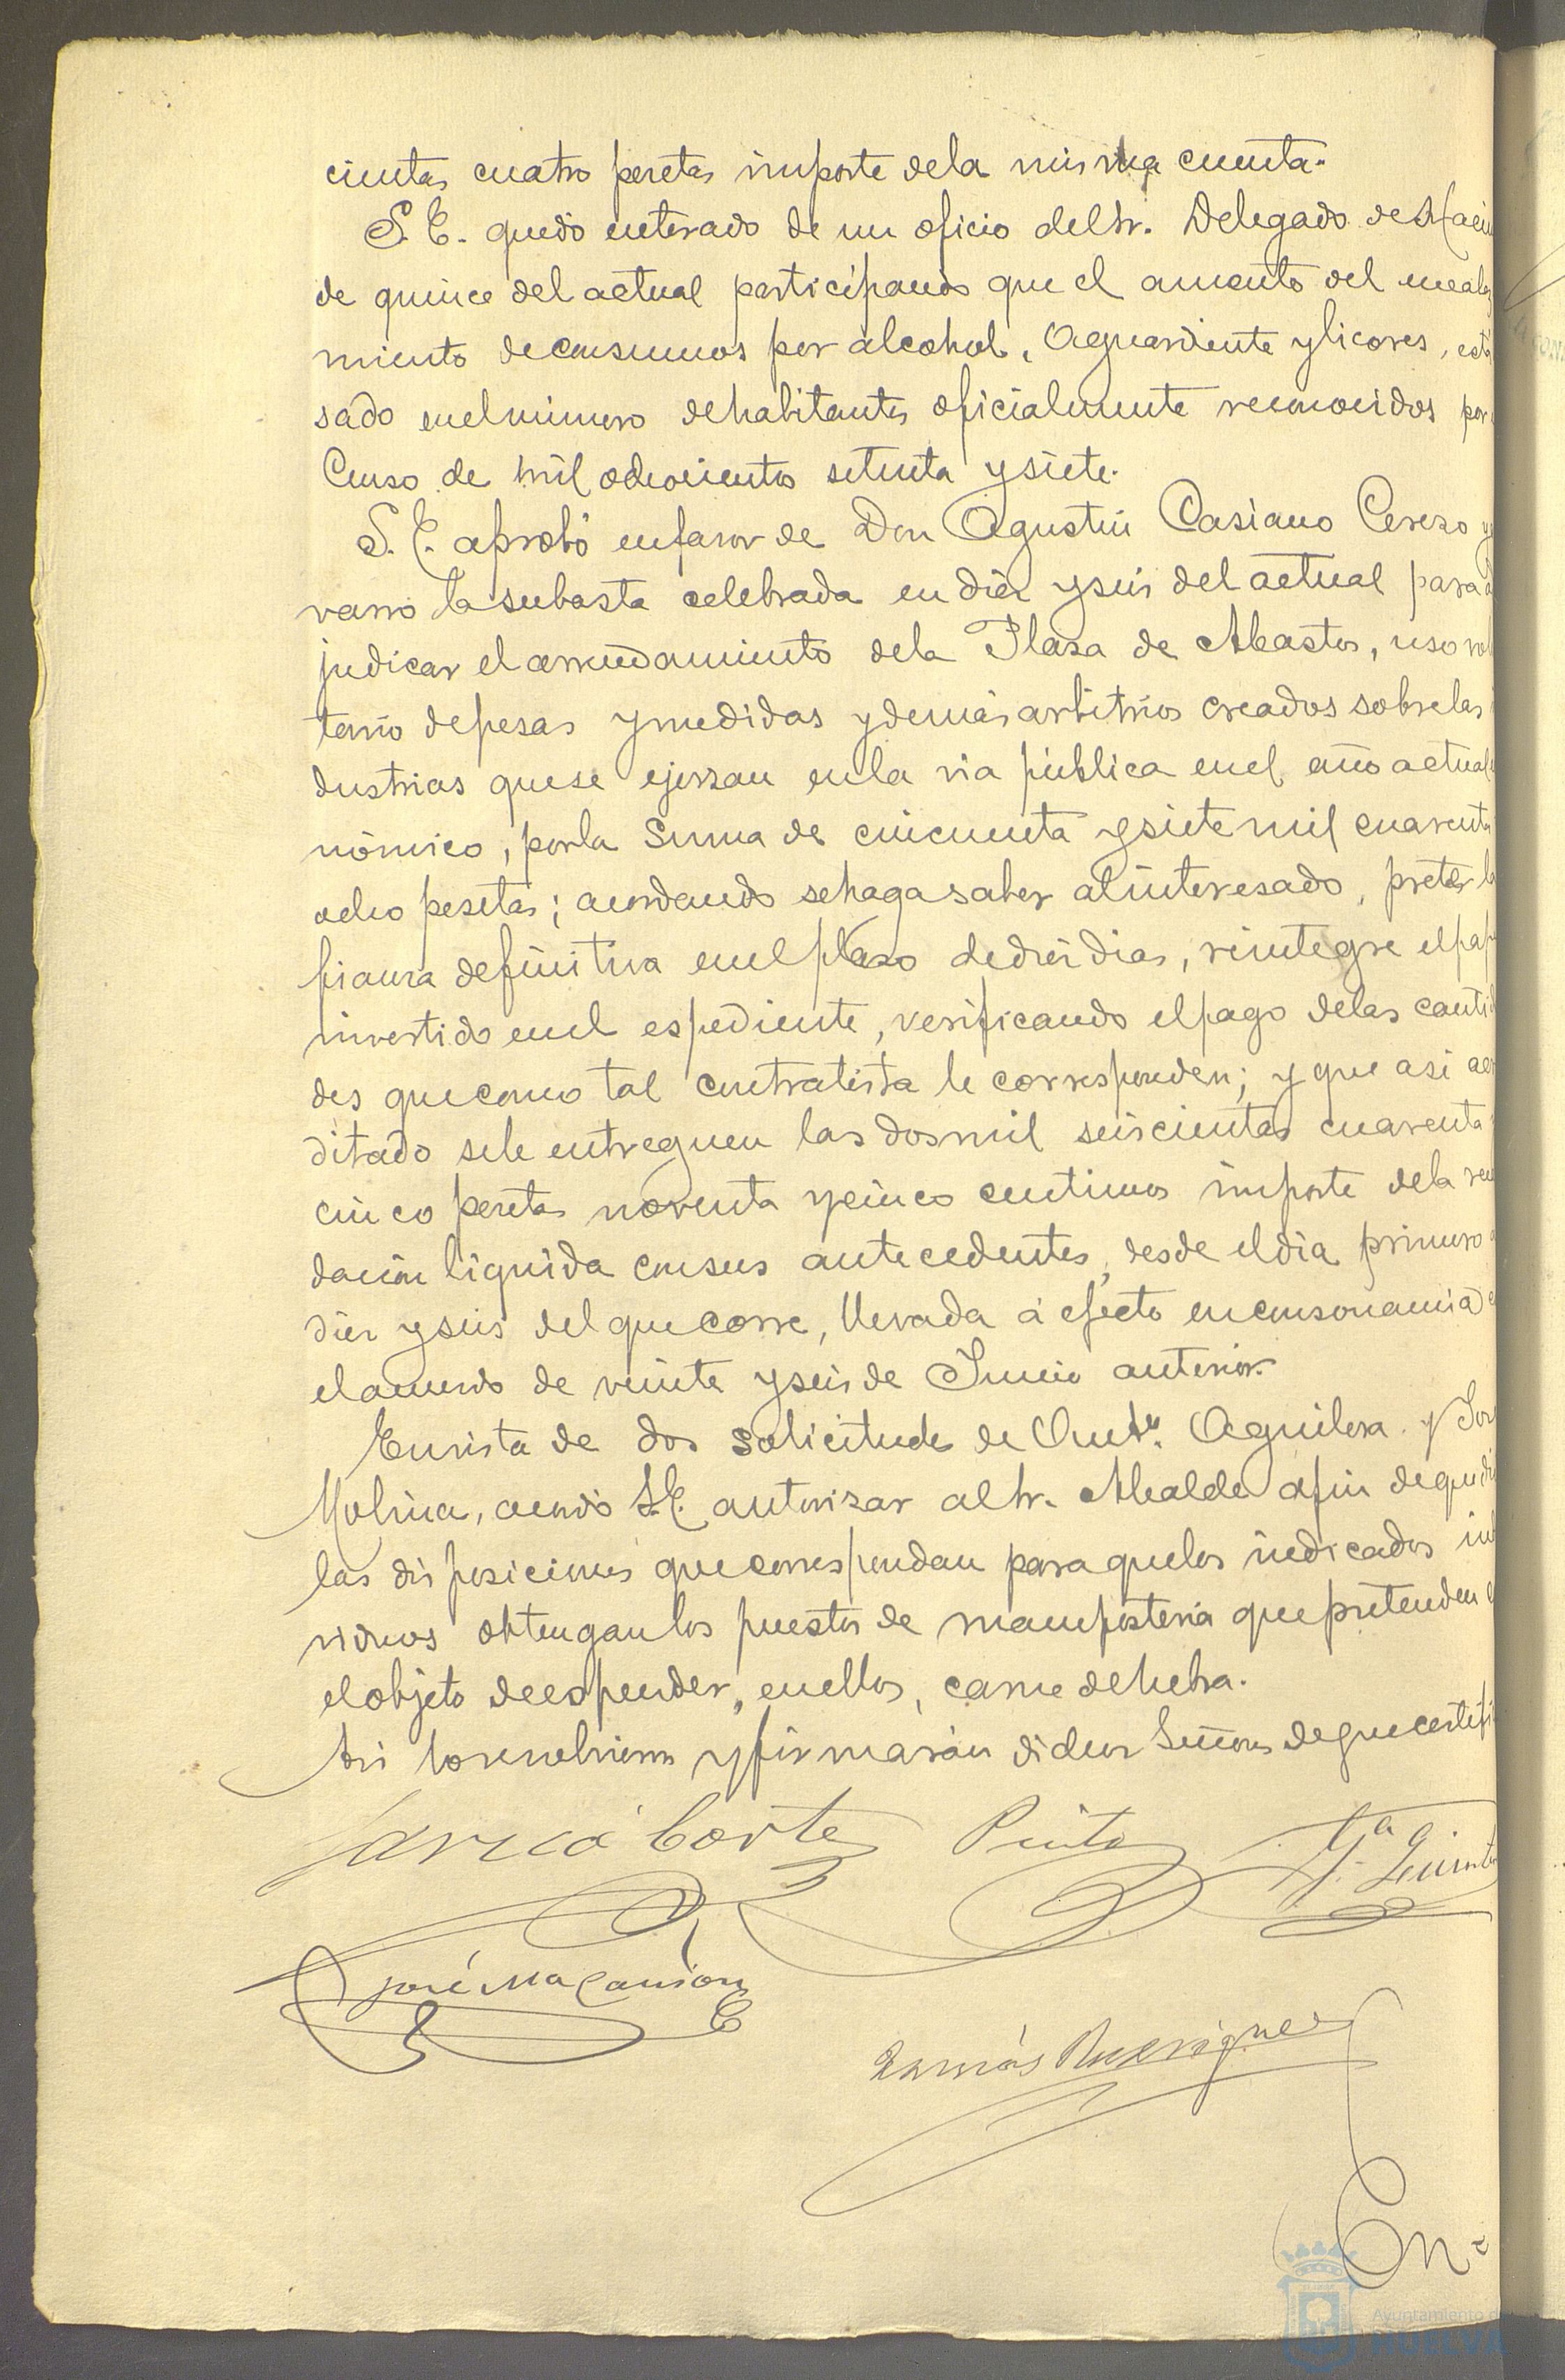 cientas cuatro pesetas importe dela misma cuenta.
S. E. quedó enterado de un oficio del Sr. Delegado de Hacien
de quince del actual participando que el aumento del encabe
miento de consumos por alcohol, Aguardiente y licores, está
sado en el número de habitantes oficialmente reconocidos por
Censo de mil ochocientos setenta y siete.
S. E. aprobó en favor de Don Agustin Casiano Cerezo y
varro la subasta celebrada en diez y seis del actual para a
judicar el arrendamiento dela Plaza de Abastos, uso vol
tario de pesas y medidas y demás arbitrios creados sobre las
dustrias que se ejerzan en la via pública en el año actual
nómico, por la Suma de cincuenta y siete mil cuarenta
ocho pesetas; acordando se haga saber al interesado, preste la
fianza definitiva en el plazo de diez dias, reintegre el pap
invertido en el espediente, verificando el pago delas canti
des que como tal contratista le corresponden; y que asi acr
ditado se le entreguen las dos mil seiscientas cuarenta
cinco pesetas noventa y cinco centimos importe dela reca
dacion liquida con sus antecedentes, desde el dia primero
diez y seis del que corre, llevada á efecto en consonancia
el acuerdo de veinte y seis de Junio anterior.
En vista de dos solicitudes de Antº. Aguilera y Jos
Molina, acordó S.E. autorizar al Sr. Alcalde a fin de que di
las disposiciones que correspondan para que los indicados in
viduos obtengan los puestos de mamposteria que pretenden
el objeto de espender, en ellos, carne de hebra.
Asi lo resolvieron y firmarán dichos Señores de que certifi
Garcia Cortes Pinto Gª. Quint
José Ma Cansion
Tomás Rodriguez
En
Ayuntamiento de
HUELVA